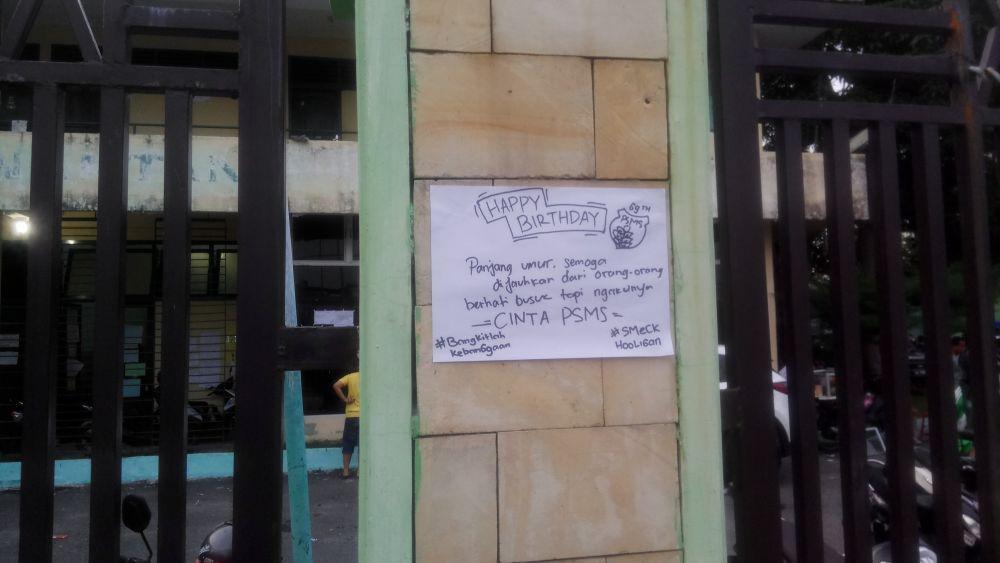 HAPPY
BIRTHDAY
69TH
PSMS
Panjang umur. semoga
dijauhkan dari orang-orang
berhati busuk tapi ngakunya
CINTA PSMS
#Bangkitlah
kebanggaan
#SMeCK
HooLiGan